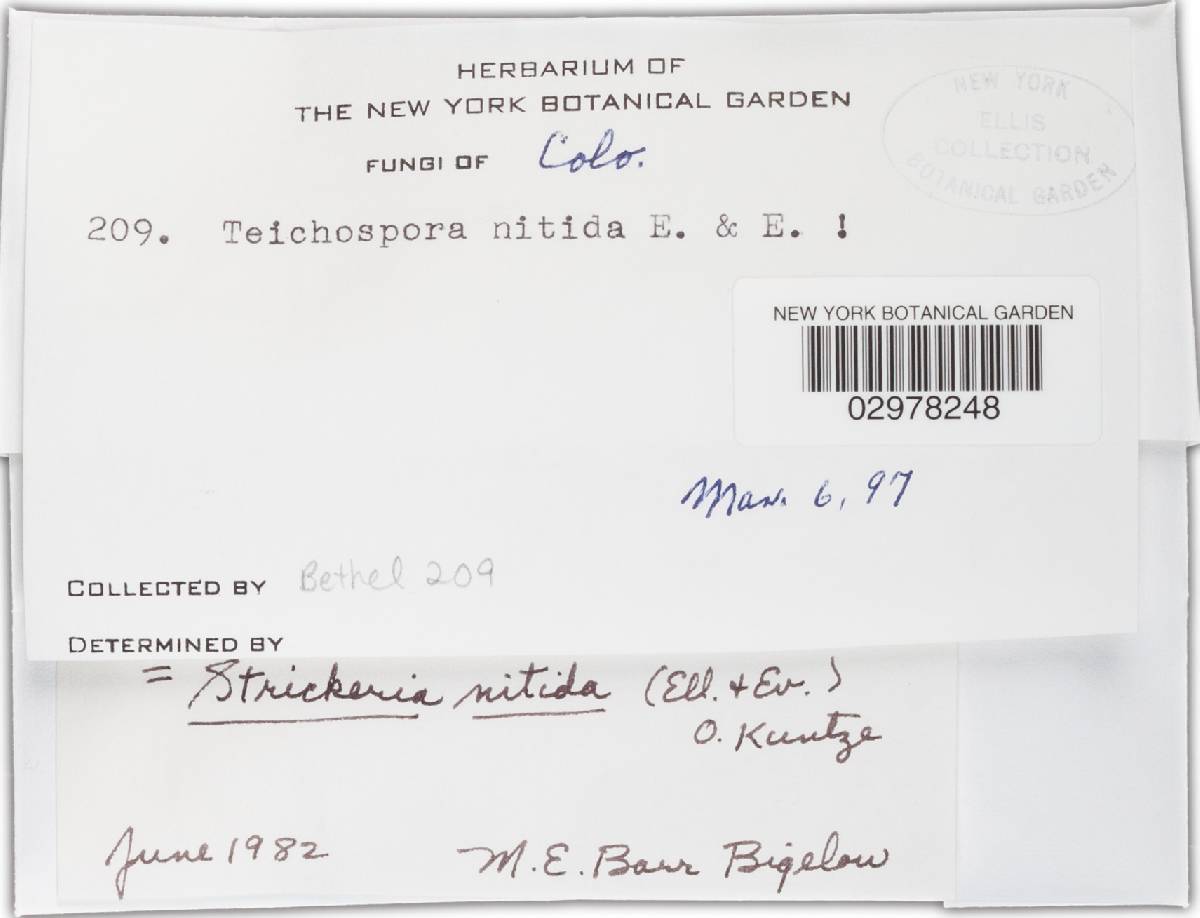 HERBARIUM OF
THE NEW YORK BOTANICAL GARDEN
FUNGI OF Colo.
NEW YORK
ELLIS
COLLECTION
BOTANICAL GARDEN
209. Teichospora nitida E. & E. !
NEW YORK BOTANICAL GARDEN
02978248
Mar. 6, 97
COLLECTED BY Bethel 209
DETERMINED BY
= Strickeria nitida (Ell. + Ev.)
O. Kuntze
June 1982 M. E. Barr Bigelow